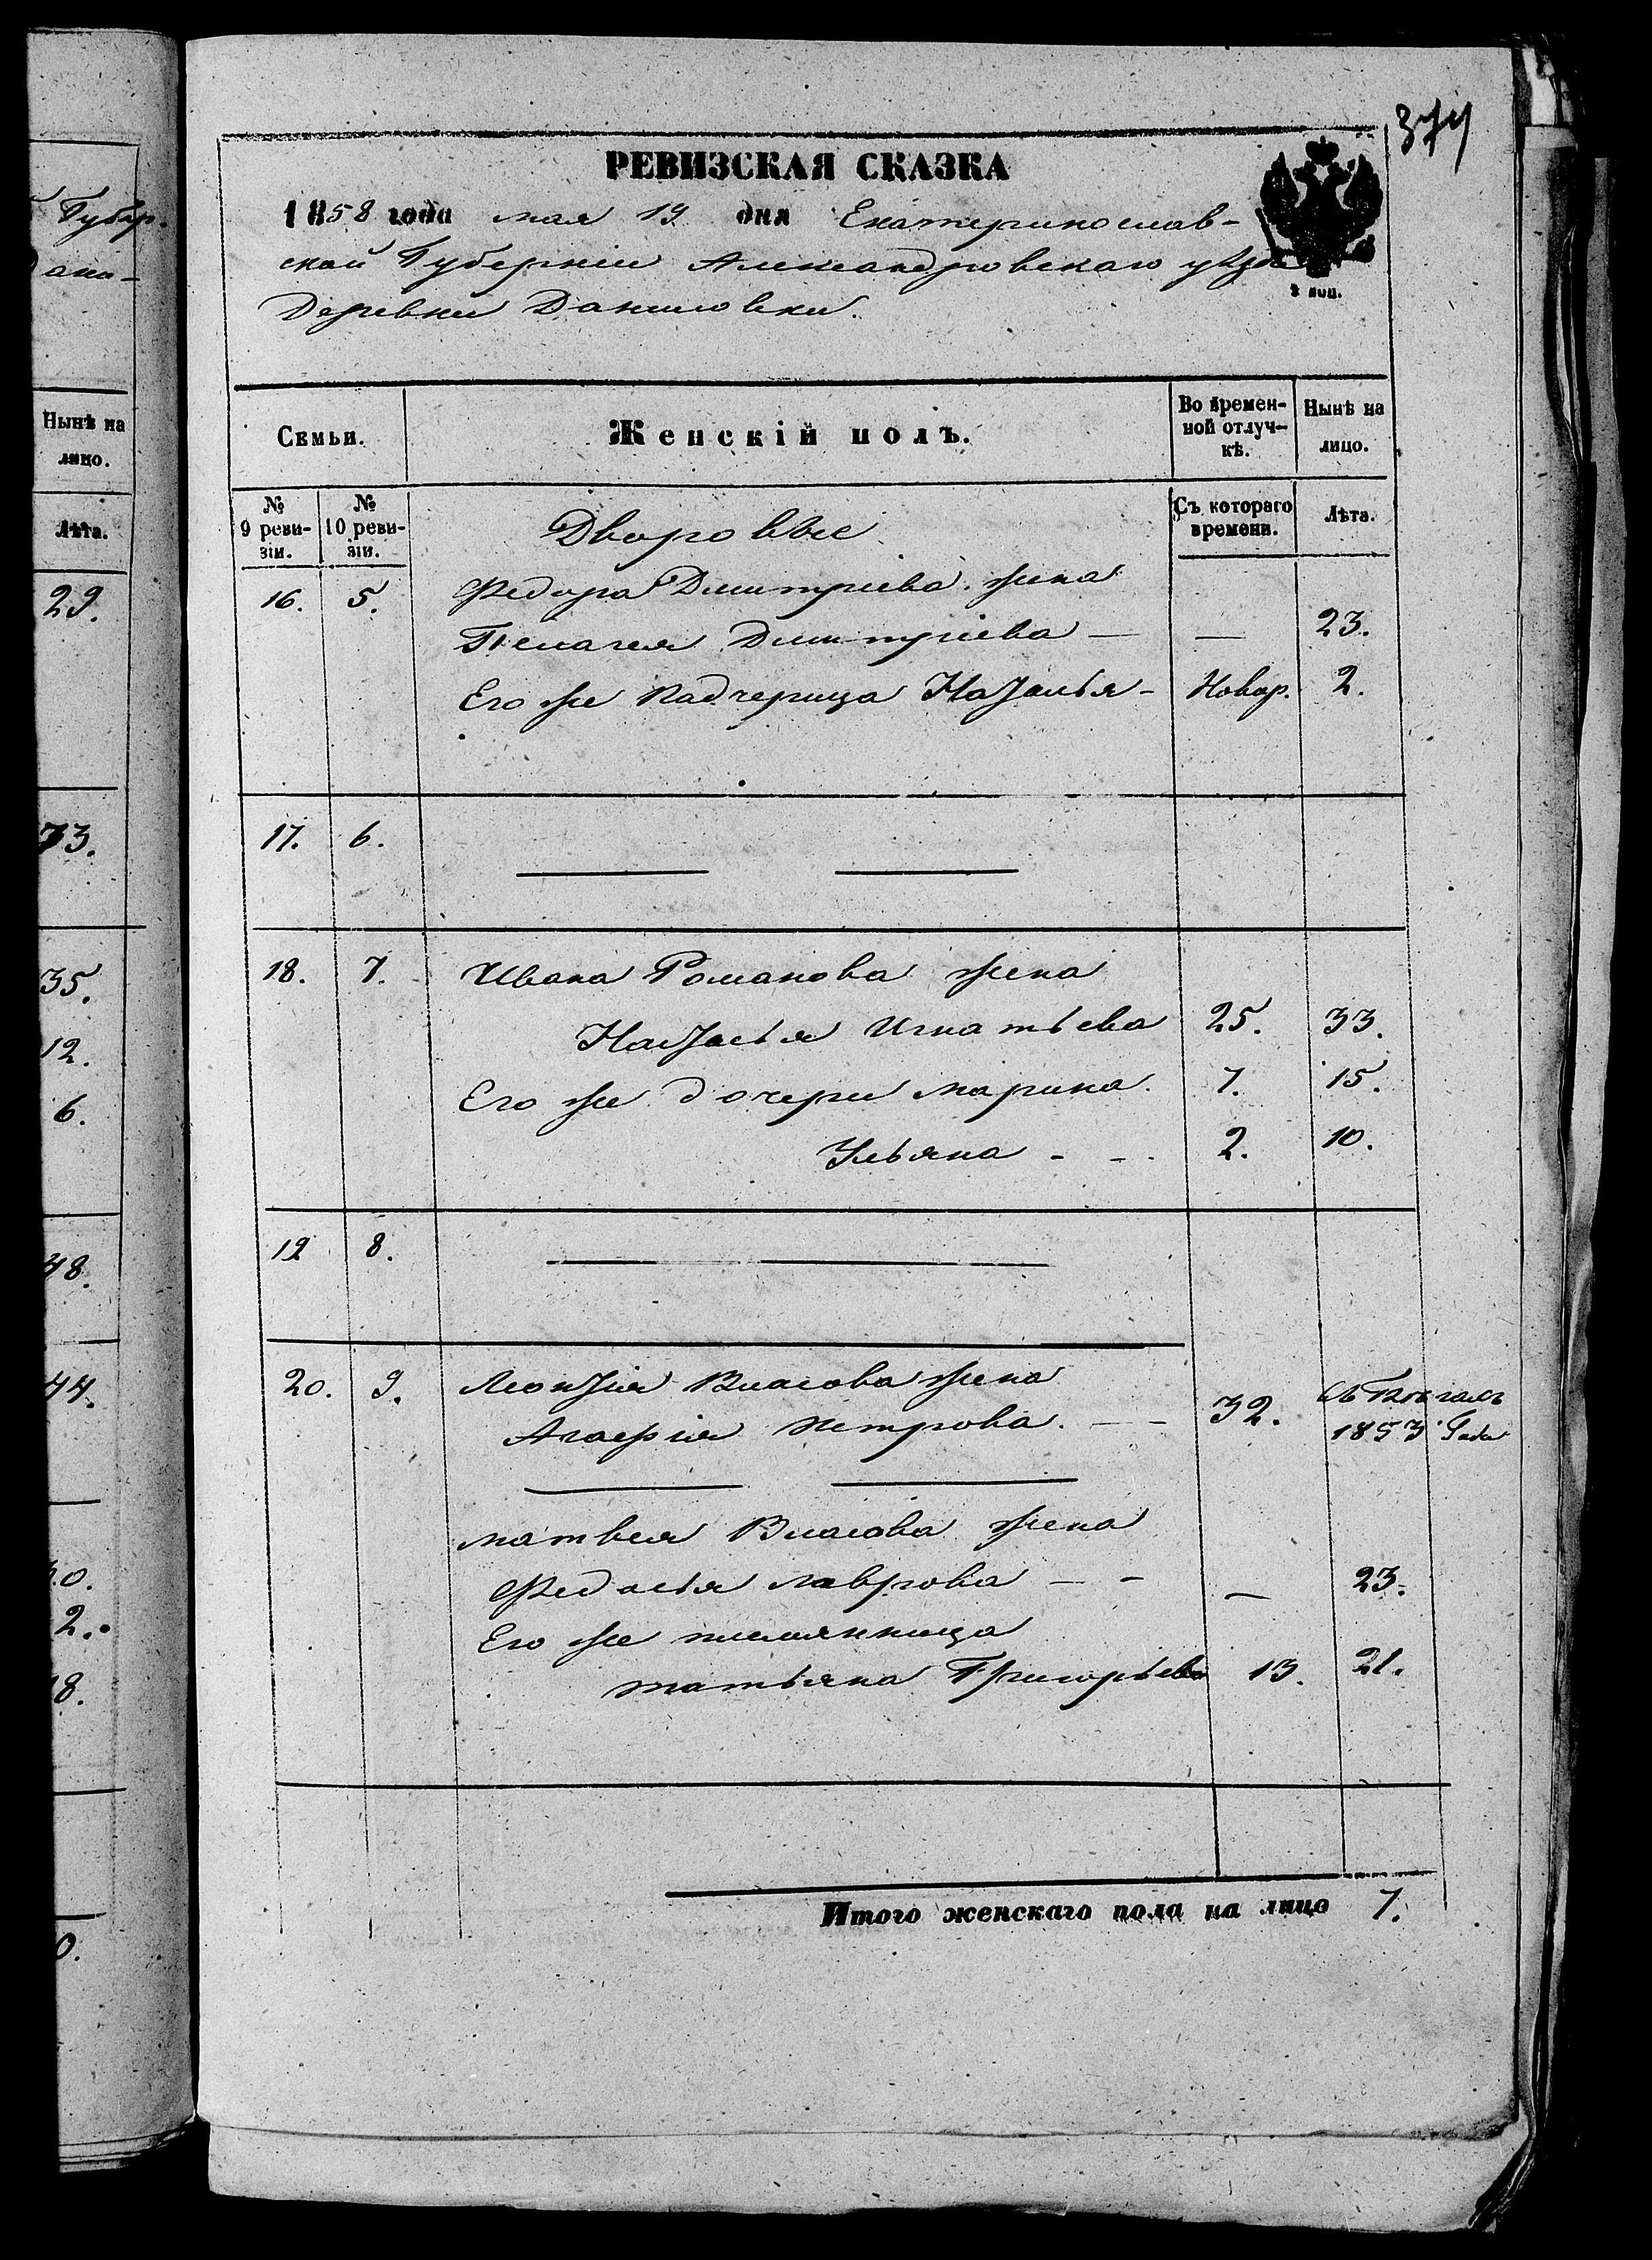 Губер.
Дани-
Нынѣ на
лицо.
Лѣта.
29.
73.
35.
12.
6.
48.
44.
2.
8.
0.
374
РЕВИЗСКАЯ СКАЗКА
1858 года мая 19 дня Екатеринослав-
ской Губерніи Александровскаго уѣзда
2 коп.
Деревни Даниловки.
Семьи.
Женскій полъ.
Во времен-
ной отлуч-
кѣ.
Нынѣ на
лицо.
№
9 реви-
зіи.
№
10 реви-
зіи.
Съ котораго
времени.
Лѣта.
Дворовые
16. 5. Федора Дмитріева жена
Пелагея Дмитріева — — 23.
Его же падчерица Наталья - Новор. 2.
17. 6.
18. 7. Ивана Романова жена
Настасья Игнатьева 25. 33.
Его же дочери Марина. 7. 15.
Ульяна - - 2. 10.
19 8.
20. 9. Леонтія Власова жена
Агафія Петрова. — — 32. въ бѣгахъ
1853 Года
Матвея Власова жена
Федосья Лаврова — — — 23.
Его же племянница
Татьяна Григорьева 13. 21.
Итого женскаго пола на лицо 7.